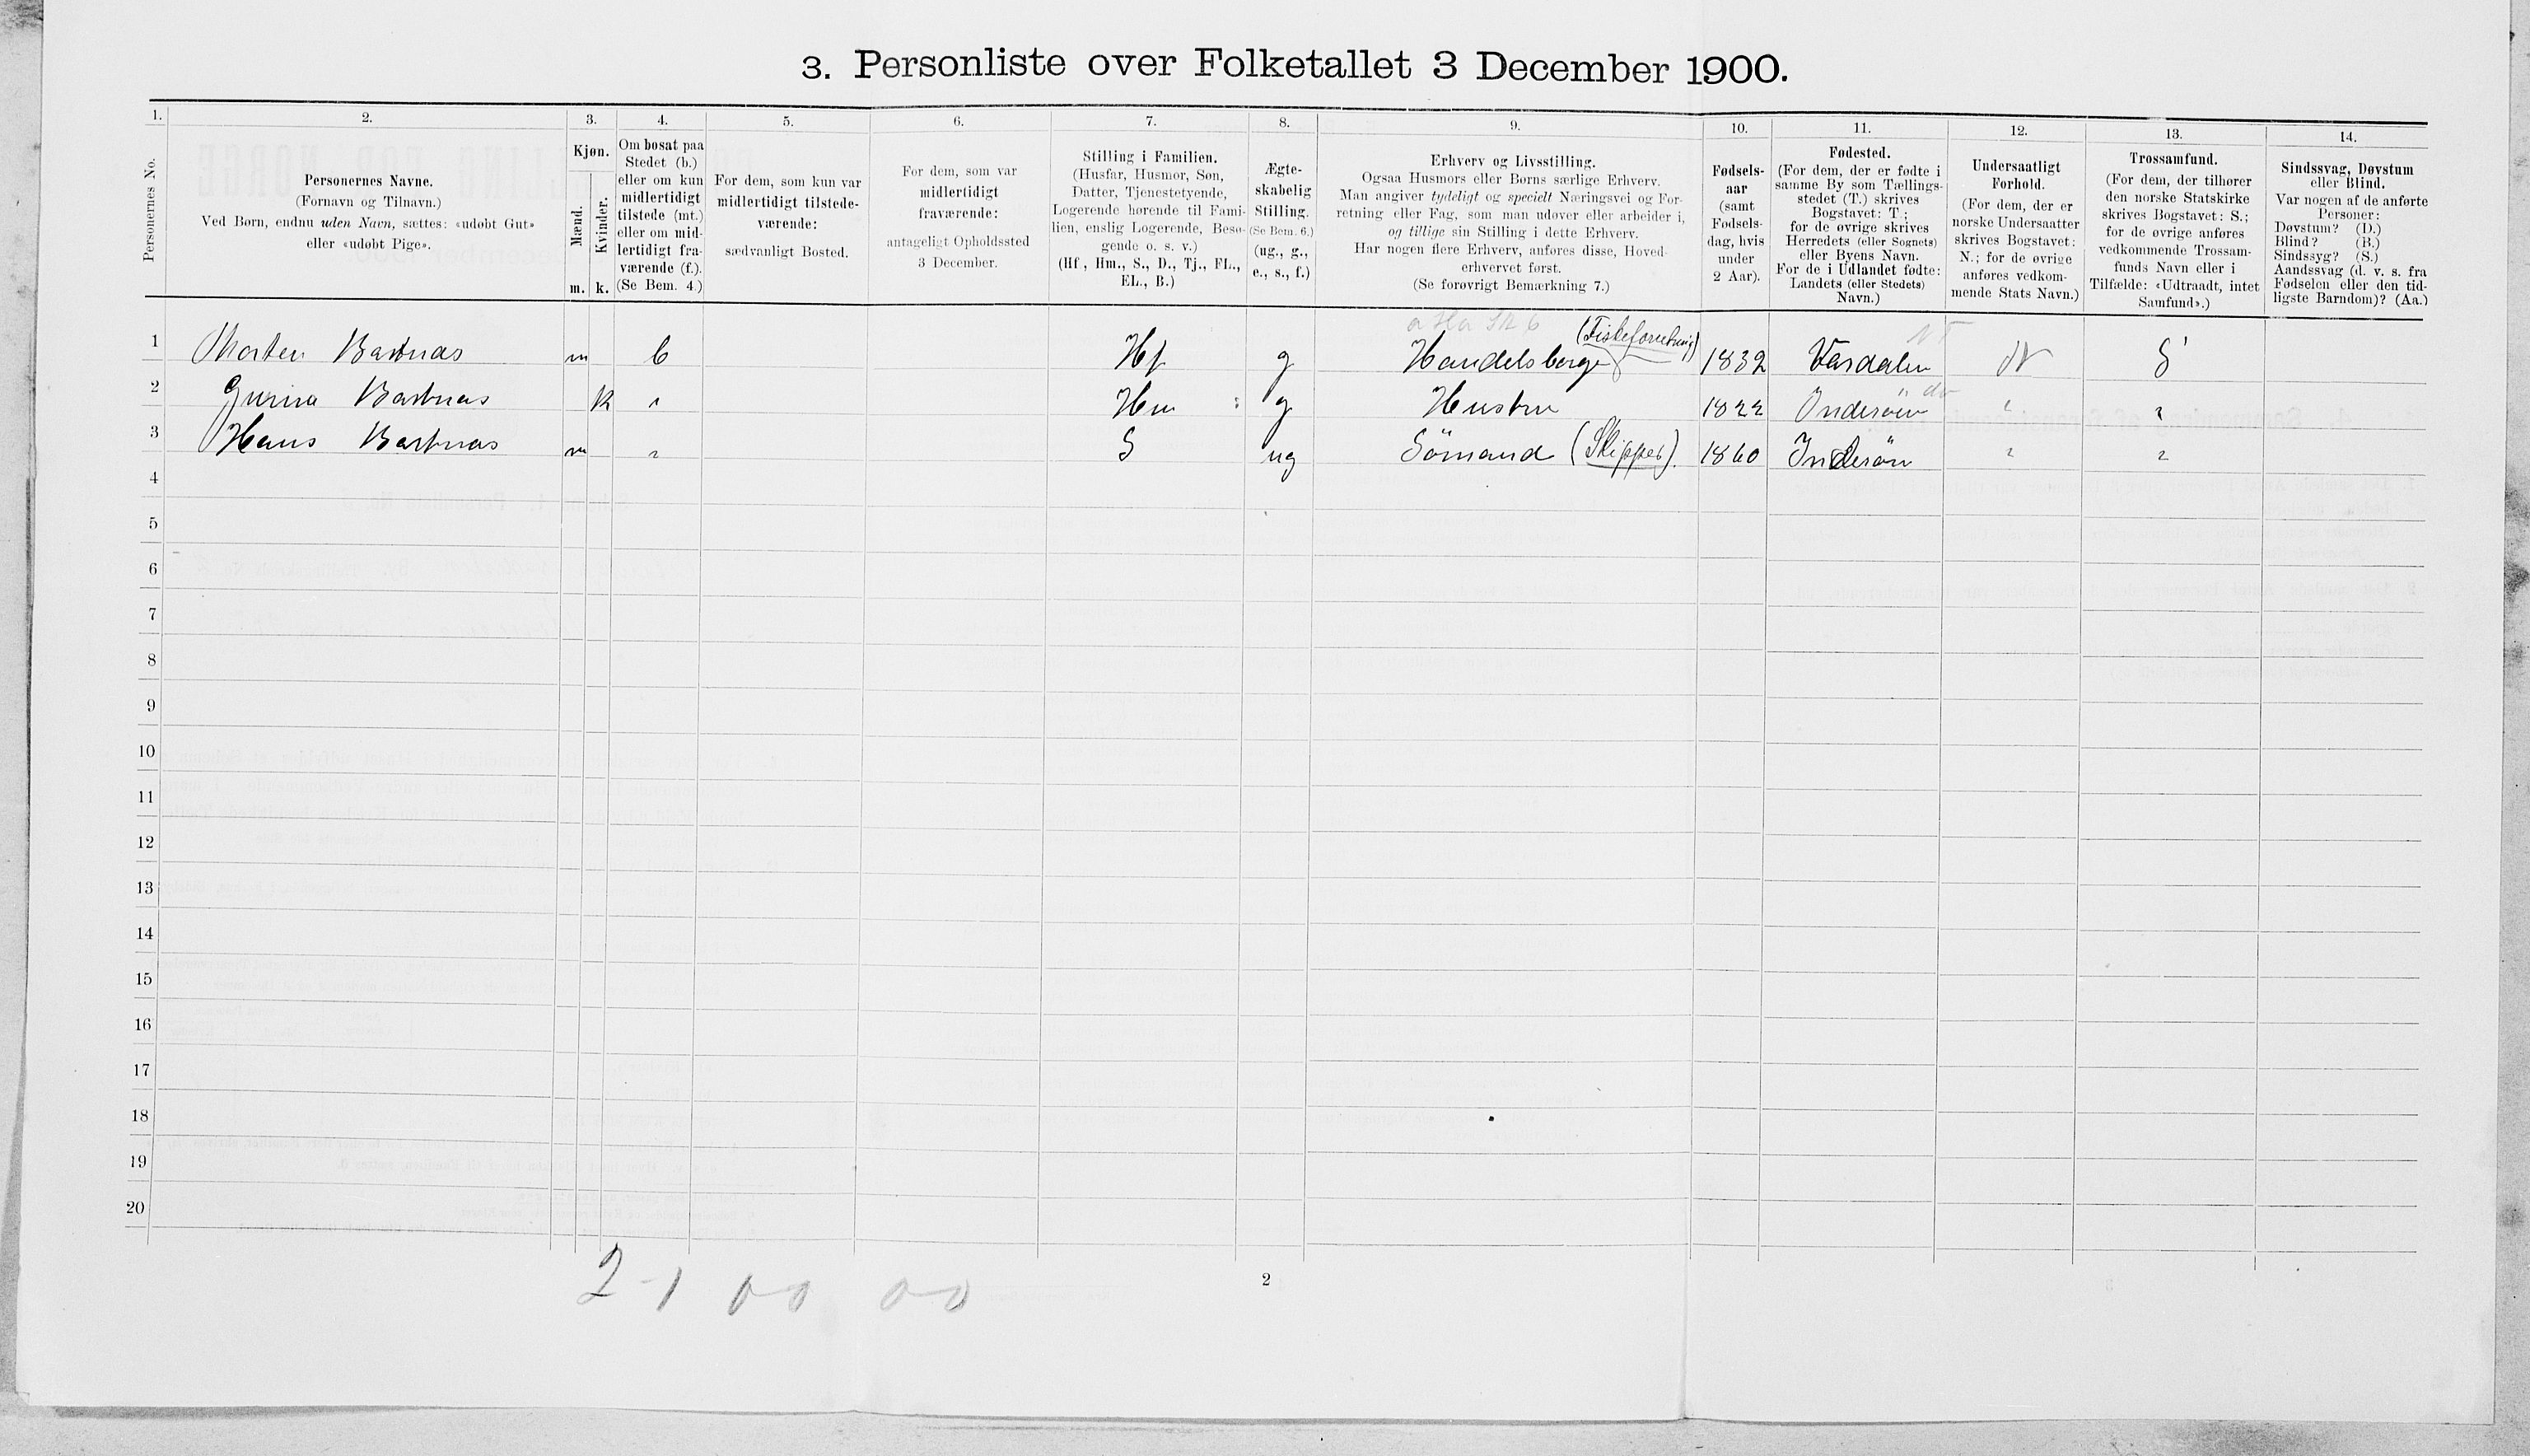 3. Personliste over Folketallet 3 December 1900.
1. 2. 3. 4. 5. 6. 7. 8. 9. 10. 11. 12. 13. 14.
Personernes No.
Personernes Navne.
(Fornavn og Tilnavn.)
Ved Børn, endnu uden Navn, sættes: «udøbt Gut»
eller «udøbt Pige».
Kjøn.
Mænd.
Kvinder.
m. k.
Om bosat paa
Stedet (b.)
eller om kun
midlertidigt
tilstede (mt.)
eller om mid-
lertidigt fra-
værende (f.).
(Se Bem. 4.)
For dem, som kun var
midlertidigt tilstede-
værende:
sædvanligt Bosted.
For dem, som var
midlertidigt
fraværende:
antageligt Opholdssted
3 December.
Stilling i Familien.
(Husfar, Husmor, Søn,
Datter, Tjenestetyende,
Logerende hørende til Fami-
lien, enslig Logerende, Besø-
gende o. s. v.)
(Hf, Hm., S., D., Tj., FL.,
EL., B.)
Ægte-
skabelig
Stilling.
(Se Bem. 6.)
(ug., g.,
e., s., f.)
Erhverv og Livsstilling.
Ogsaa Husmors eller Børns særlige Erhverv.
Man angiver tydeligt og specielt Næringsvei og For-
retning eller Fag, som man udøver eller arbeider i,
og tillige sin Stilling i dette Erhverv.
Har nogen flere Erhverv, anføres disse, Hoved-
erhvervet først.
(Se forøvrigt Bemærkning 7.)
Fødsels-
aar
(samt
Fødsels-
dag, hvis
under
2 Aar).
Fødested.
(For dem, der er fødte i
samme By som Tællings-
stedet (T.) skrives
Bogstavet: T.;
for de øvrige skrives
Herredets (eller Sognets)
eller Byens Navn.
For de i Udlandet fødte:
Landets (eller Stedets)
Navn.)
Undersaatligt
Forhold.
(For dem, der er
norske Undersaatter
skrives Bogstavet:
N.; for de øvrige
anføres vedkom-
mende Stats Navn.)
Trossamfund.
(For dem, der tilhører
den norske Statskirke
skrives Bogstavet: S.;
for de øvrige anføres
vedkommende Trossam-
funds Navn eller i
Tilfælde: «Udtraadt, intet
Samfund».)
Sindssvag, Døvstum
eller Blind.
Var nogen af de anførte
Personer:
Døvstum? (D.)
Blind? (B.)
Sindssyg? (S.)
Aandssvag (d. v. s. fra
Fødselen eller den tid-
ligste Barndom)? (Aa.)
(Fiskeforretning)
1 Morten Bartnas m b Hf g Handelsborger 1832 Værdalen N S
2 Gurina Bartnas k " Hm g Hustru 1822 Inderøen " "
3 Hans Bartnas m " S ug Sömand (Skipper). 1860 Inderøen " "
4
5
6
7
8
9
10
11
12
13
14
15
16
17
18
19
20
2-1 00 00
2